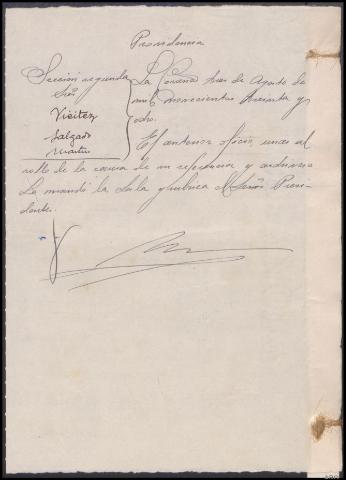 Providencia
Sección segunda
Srs
Vieitez
Salgado
Martin
La Coruña tres de Agosto de
mil novecientos treinta y
ocho.
El anterior oficio unase al
rollo de la causa de su referencia y archivese
Lo mandó la Sala y rubrica el Señor Presi-
dente.